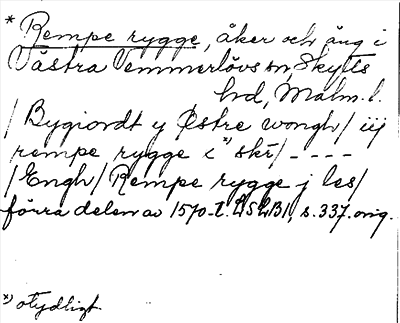 * Rempe rygge, åker och äng i
Västra Vemmerlövs sn, Skytts
hd, Malm. l.
/ Bygiordt y Østre wongh / iij
rempe rygge i x) skr / - - - -
/ Engh / Rempe rygge j les /
förra delen av 1570-t. LSLB1, s. 337. orig.
x) otydligt.